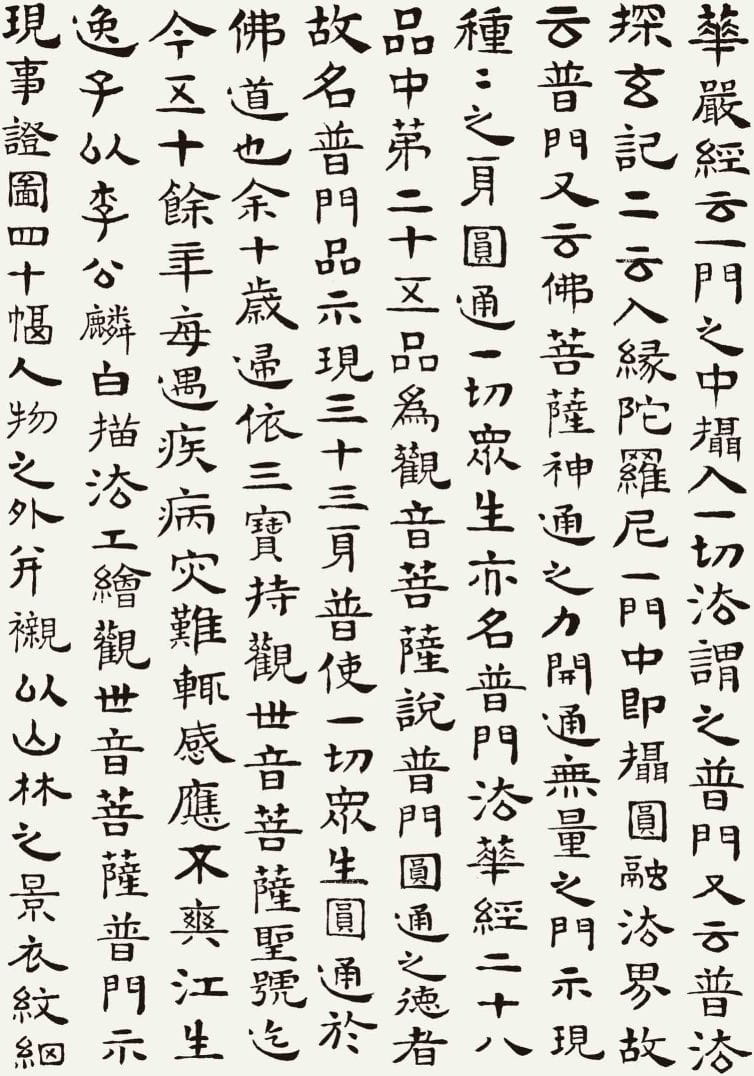 華嚴經云一門之中攝入一切法謂之普門又云普法
探玄記二云入緣陀羅尼一門中即攝圓融法界故
云普門又云佛菩薩神通之力開通無量之門示現
種〻之身圓通一切眾生亦名普門法華經二十八
品中第二十五品為觀音菩薩說普門圓通之德者
故名普門品示現三十三身普使一切眾生圓通於
佛道也余十歲歸依三寶持觀世音菩薩聖號迄
今五十餘年每遇疾病災難輒感應不爽江生
逸子以李公麟白描法工繪觀世音菩薩普門示
現事證圖四十幅人物之外并襯以山林之景衣紋細